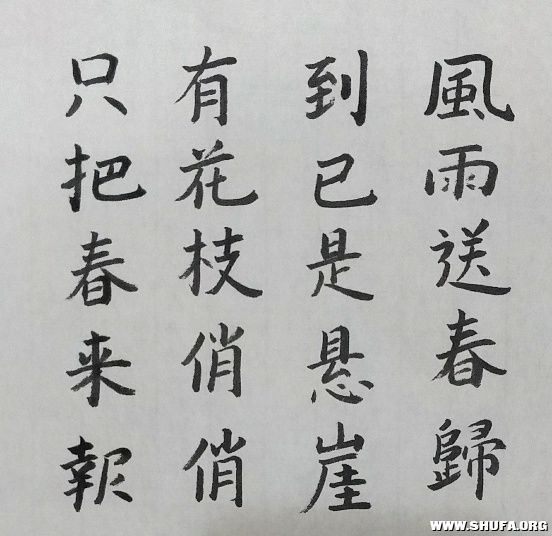 風雨送春歸
到已是悬崖
有花枝俏俏
只把春来報
WWW.SHUFA.ORG